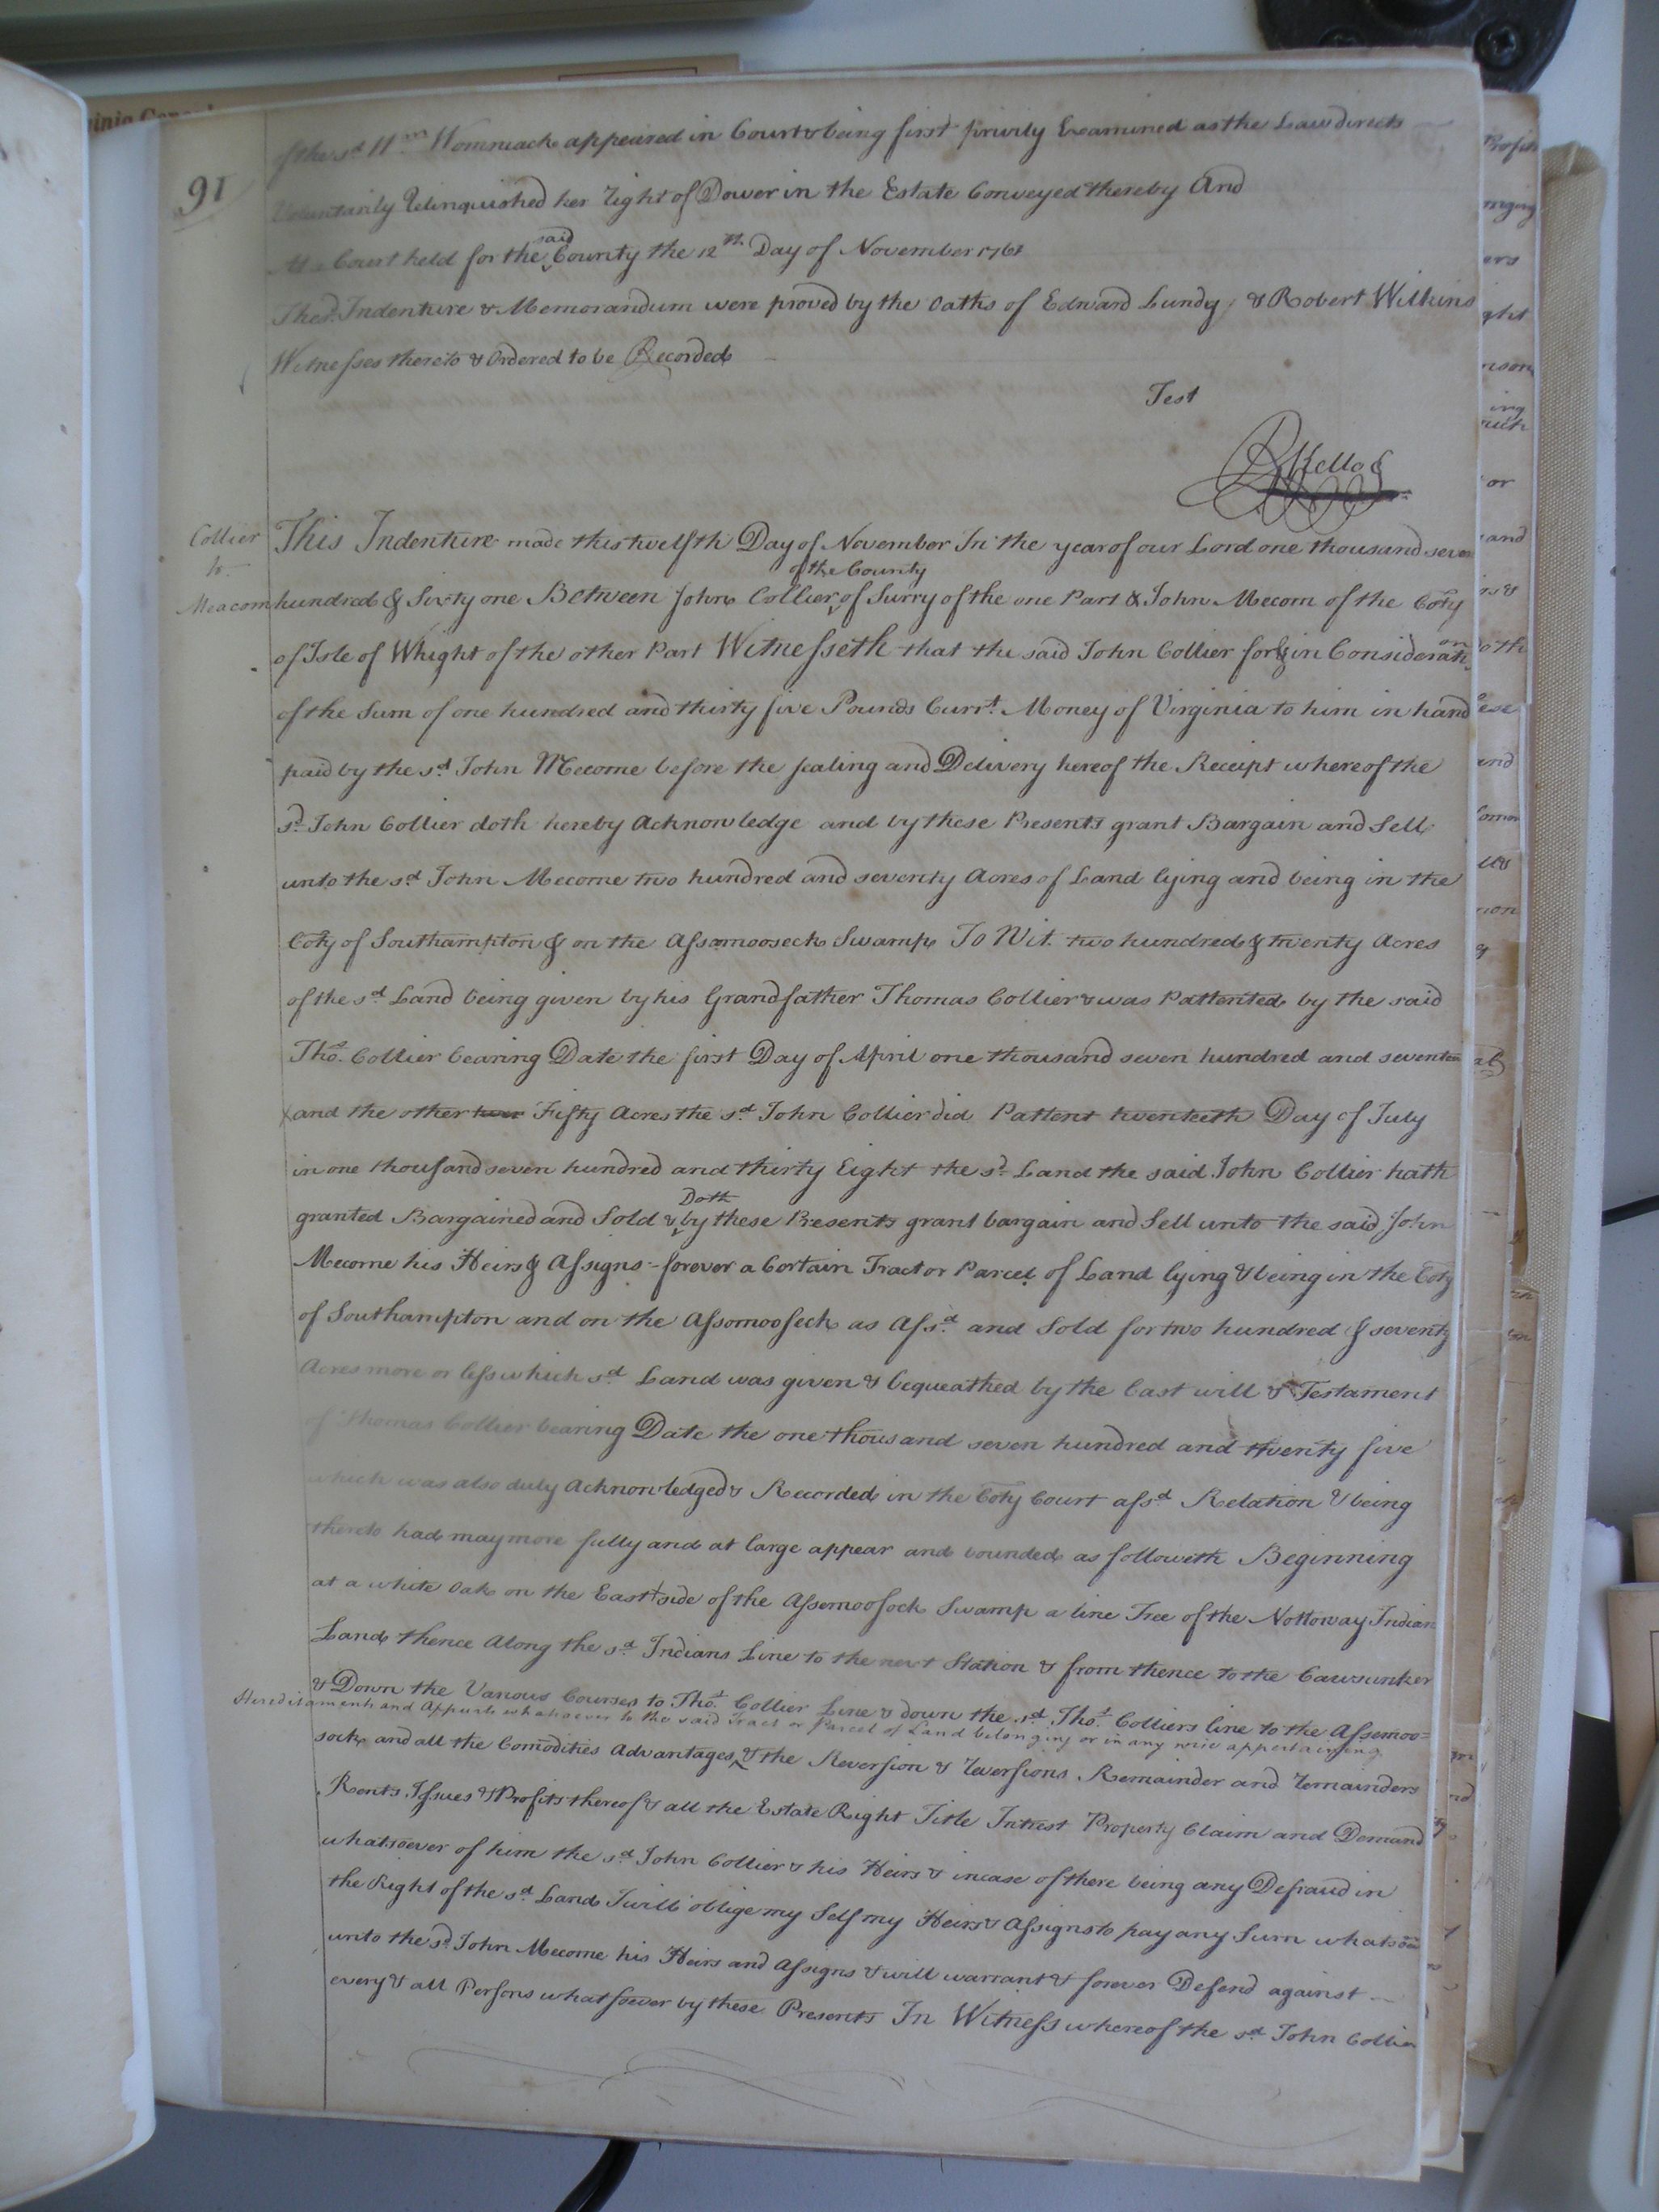 91
of the sd Wm Wommack appeared in Court & being first privily Examined as the Law directs
Voluntarily Relinquished her Right of Dower in the Estate Conveyed thereby And
At a Court held for the said County the 12th Day of November 1761
The sd. Indenture & Memorandum were proved by the Oaths of Edward Lundy, & Robert Wilkins
Witnesses thereto & Ordered to be Recorded
Test
RKello
Collier
to
Meacom
This Indenture made this twelfth Day of November In the year of our Lord one thousand seven
hundred & Sixty one Between John Collier of the County of Surry of the one Part & John Mecom of the Coty
of Isle of Whight of the other Part Witnesseth that the said John Collier for & in Consideration
of the Sum of one hundred and thirty five Pounds Currt. Money of Virginia to him in hand
paid by the sd John Mecome before the sealing and Delivery hereof the Receipt whereof the
sd John Collier doth hereby Acknowledge and by these Presents grant Bargain and Sell
unto the sd John Mecome two hundred and seventy Acres of Land lying and being in the
Coty of Southampton & on the Assamooseck Swamp To Wit. two hundred & twenty Acres
of the sd Land being given by his Grandfather Thomas Collier & was Pattented by the said
Thos. Collier bearing Date the first Day of April one thousand seven hundred and seventeen
and the other Fifty Acres the sd John Collier did Pattent twenteeth Day of July
in one thousand seven hundred and thirty Eight the sd Land the said John Collier hath
granted Bargained and Sold & Doth by these Presents grant bargain and Sell unto the said John
Mecome his Heirs & Assigns - forever a Certain Tract or Parcel of Land lying & being in the Coty
of Southampton and on the Assomooseck as Afsd and Sold for two hundred & seventy
Acres more or less which sd Land was given & bequeathed by the Last will & Testament
of Thomas Collier bearing Date the one thousand seven hundred and twenty five
which was also duly Acknowledged & Recorded in the Coty Court afsd Relation & being
thereto had may more fully and at large appear and bounded as followeth Beginning
at a white Oak on the East side of the Assemoosock Swamp a line Tree of the Nottoway Indian
Land thence Along the sd Indians Line to the next Station & from thence to the Cawsunker
& Down the Various Courses to Thos. Collier Line & down the sd Thos. Colliers line to the Assemoo=
Hereditaments and Appurts whatsoever to the said Tract or Parcel of Land belonging or in any wise appertaining
sock and all the Comodities Advantages & the Reversion & Reversions Remainder and Remainders
Rents, Issues & Profits thereof & all the Estate Right Title Intrest Property Claim and Demand
whatsoever of him the sd John Collier & his Heirs & incase of there being any Defraud in
the Right of the sd Land I will oblige my Self my Heirs & Assigns to pay any Sum whatsoever
unto the sd John Mecome his Heirs and Assigns & will warrant & forever Defend against
every & all Persons whatsoever by these Presents In Witness whereof the sd John Collier